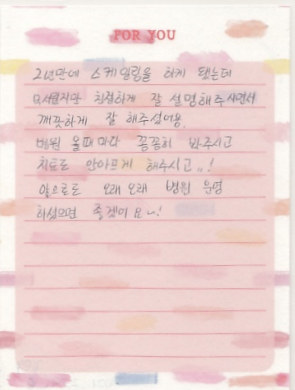 FOR YOU
2년만에 스케일링을 하게 됐는데
무서웠지만 친절하게 잘 설명해주시면서
깨끗하게 잘 해주셨어용
병원 올때마다 꼼꼼히 봐주시고
치료도 안아프게 해주시고..!
앞으로도 오래오래 병원 운영
하셨으면 좋겠어요~!